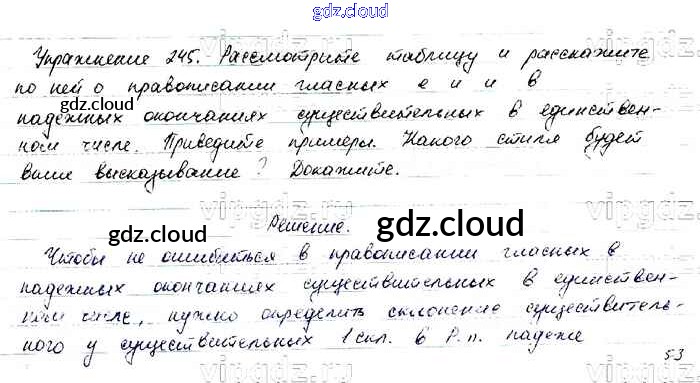 gdz.cloud
Упражнение 245. Рассмотрите таблицу и расскажите
по ней о правописании гласных е и и в
gdz.cloud
gdz.cloud
падежных окончаниях существительных в единствен-
ном числе. Приведите примеры. Какого стиля будет
gdz.cloud
ваше высказывание? Докажите.
vipgdz
Решение.
gdz.cloud
gdz.cloud
Чтобы не ошибиться в правописании гласных в
падежных окончаниях существительных в единствен-
ном числе, нужно определить склонение существитель-
ного у существительных 1 скл. в Р.п. падеже
53